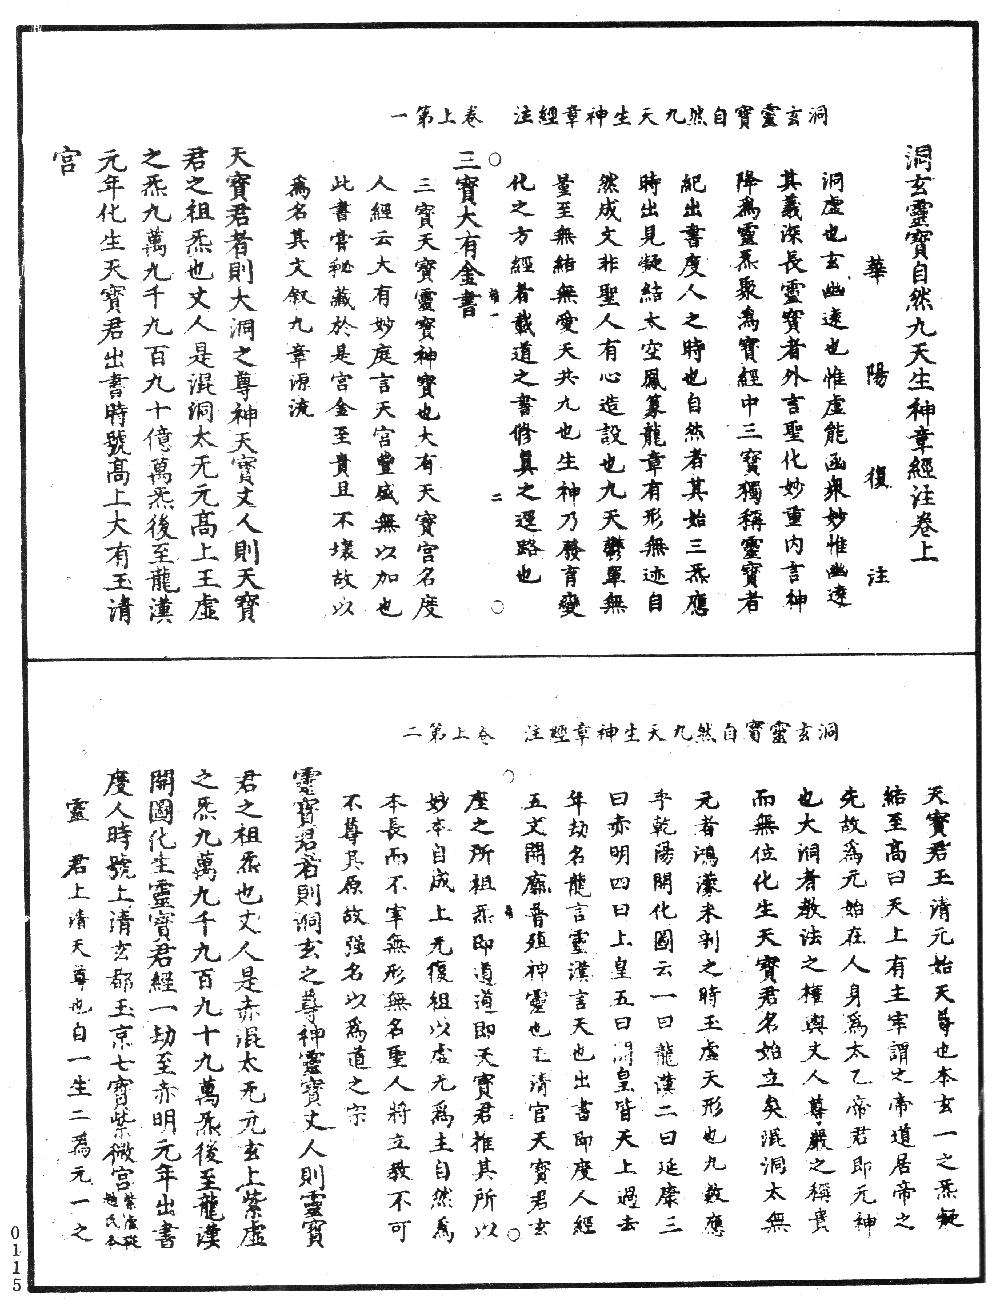 洞玄靈寶自然九天生神章經注　卷上第一
洞玄靈寶自然九天生神章經注卷上
華陽復注
洞虛也玄幽遠也惟虛能函衆妙惟幽遠
其義深長靈寶者外言聖化妙重内言神
降為靈炁聚為寶經中三寶獨稱靈寶者
紀出書度人之時也自然者其始三炁應
時出見凝結太空鳳篆龍章有形無迹自
然成文非聖人有心造設也九天鬱單無
量至無結無愛天共九也生神乃發育變
化之方經者載道之書修真之逕路也
三寶大有金書
三寶天寶靈寶神寶也大有天寶宮名度
人經云大有妙庭言天宮豊盛無以加也
此書嘗秘藏於是宮金至貴且不壞故以
爲名其文叙九章源流
天寶君者則大洞之尊神天寶丈人則天寶
君之祖炁也丈人是混洞太无元高上玉虛
之炁九萬九千九百九十億萬炁後至龍漢
元年化生天寶君出書時號高上大有玉清
宮
洞玄靈寶自然九天生神章經注　卷上第二
天寶君玉清元始天尊也本玄一之炁凝
結至高曰天上有主宰謂之帝道居帝之
先故爲元始在人身爲太乙帝君即元神
也大洞者教法之權輿丈人尊嚴之稱貴
而無位化生天寶君名始立矣混洞太無
元者鴻濛未剖之時玉虛天形也九數應
乎乾陽開化圖云一曰龍漢二曰延康三
曰赤明四曰上皇五曰開皇皆天上過去
年劫名龍言靈漢言天也出書即度人經
五文開廓普殖神靈也玉清宮天寶君玄
座之所祖炁即道道即天寶君推其所以
妙本自成上无復祖以虛无爲主自然為
本長而不宰無形無名聖人將立教不可
不尊其原故强名以爲道之宗
靈寶君者則洞玄之尊神靈寶丈人則靈寶
君之祖炁也丈人是赤混太无元玄上紫虛
之炁九萬九千九百九十九萬炁後至龍漢
開圖化生靈寶君經一劫至赤明元年出書
度人時號上清玄都玉京七寶紫微宮
靈　君上清天尊也自一生二為元一之
0115